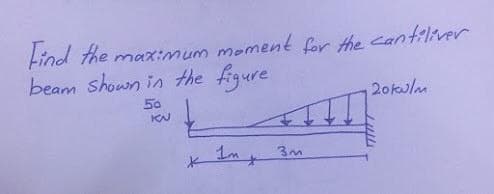 Find the maximum moment for the cantiliver
beam shown in the figure
50
KN
20 kN/m
1m
3m